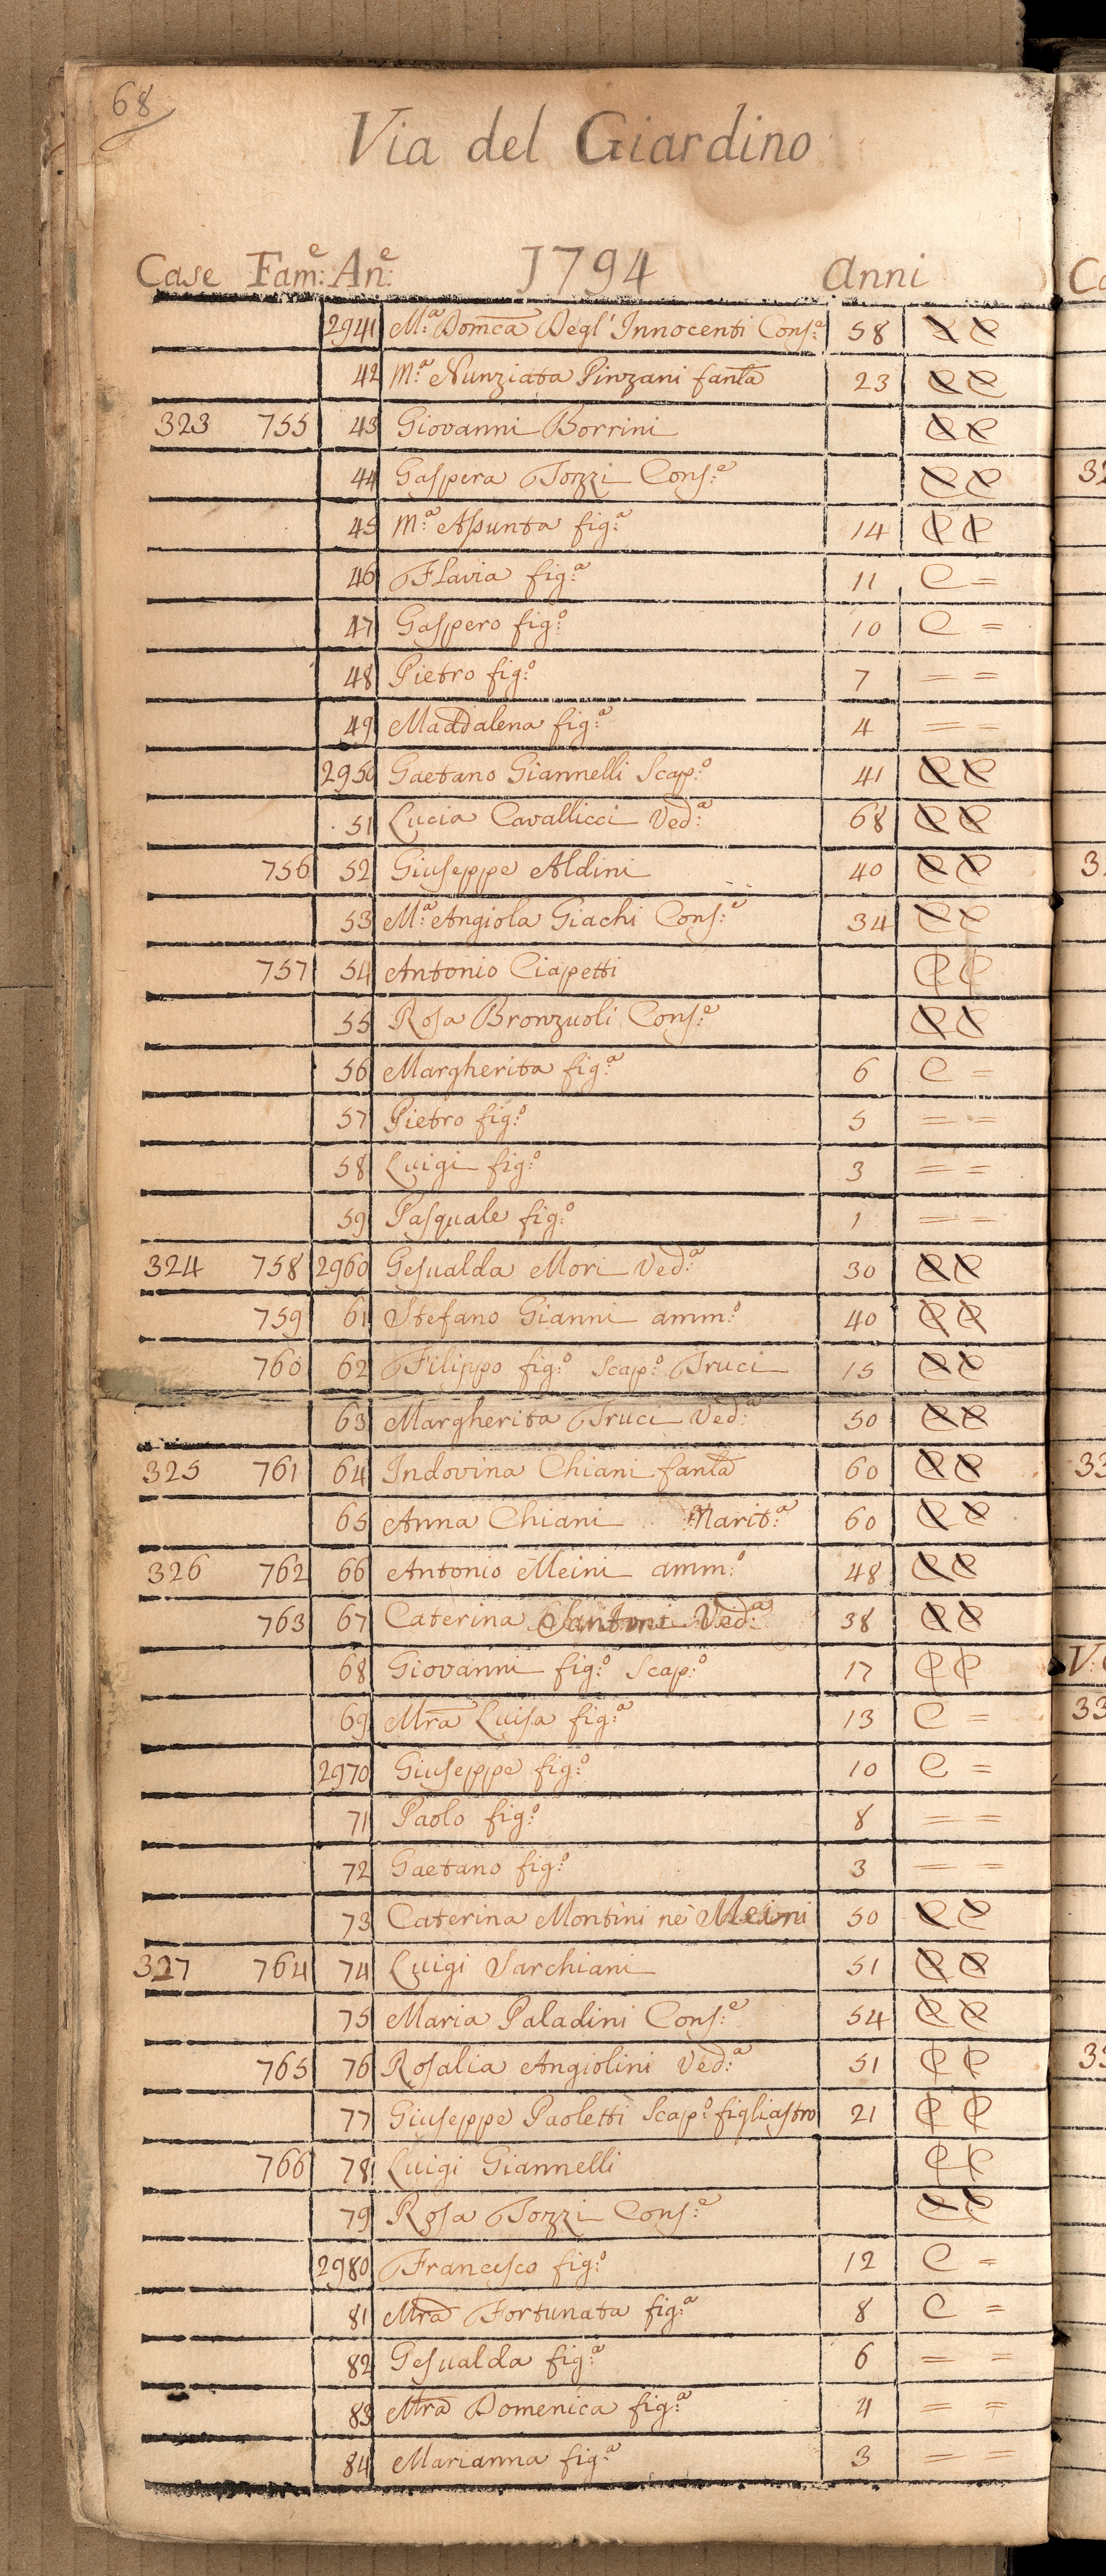 68
Via del Giardino
Case Fam:e An:e 1794 Anni
2941 M:a Dom̃ca Degl' Innocenti Cons:e 58 C C
42 M:a Nunziata Pinzani fanla 23 C C
323 755 43 Giovanni Borrini C C
44 Gaspera Tozzi Cons:e C C
45 M:a Assunta fig:a 14 C C
46 Flavia fig:a 11 C =
47 Gaspero fig:o 10 C =
48 Pietro fig:o 7 = =
49 Maddalena fig:a 4 = =
2950 Gaetano Giannelli Scap:o 41 C C
51 Lucia Cavallicci Ved:a 68 C C
756 52 Giuseppe Aldini 40 C C
53 M:a Angiola Giachi Cons:e 34 C C
757 54 Antonio Ciapetti C C
55 Rosa Bronzuoli Cons:e C C
56 Margherita fig:a 6 C =
57 Pietro fig:o 5 = =
58 Luigi fig:o 3 = =
59 Pasquale fig:o 1 = =
324 758 2960 Gesualda Mori Ved:a 30 C C
759 61 Stefano Gianni amm:o 40 C C
760 62 Filippo fig:o Scap:o Truci 15 C C
63 Margherita Truci Ved:a 50 C C
325 761 64 Indovina Chiani fanla 60 C C
65 Anna Chiani Marit:a 60 C C
326 762 66 Antonio Meini amm:o 48 C C
763 67 Caterina Santoni Ved:a 38 C C
68 Giovanni fig:o Scap:o 17 C C
69 Mr̃a Luisa fig:a 13 C =
2970 Giuseppe fig:o 10 C =
71 Paolo fig:o 8 = =
72 Gaetano fig:o 3 = =
73 Caterina Montini ne' Meini 50 C C
327 764 74 Luigi Sarchiani 51 C C
75 Maria Paladini Cons:e 54 C C
765 76 Rosalia Angiolini Ved:a 51 C C
77 Giuseppe Paoletti Scap:o figliastro 21 C C
766 78 Luigi Giannelli C C
79 Rosa Tozzi Cons:e C C
2980 Francesco fig:o 12 C =
81 Mr̃a Fortunata fig:a 8 C =
82 Gesualda fig:a 6 = =
83 Mr̃a Domenica fig:a 4 = =
84 Marianna fig:a 3 = =